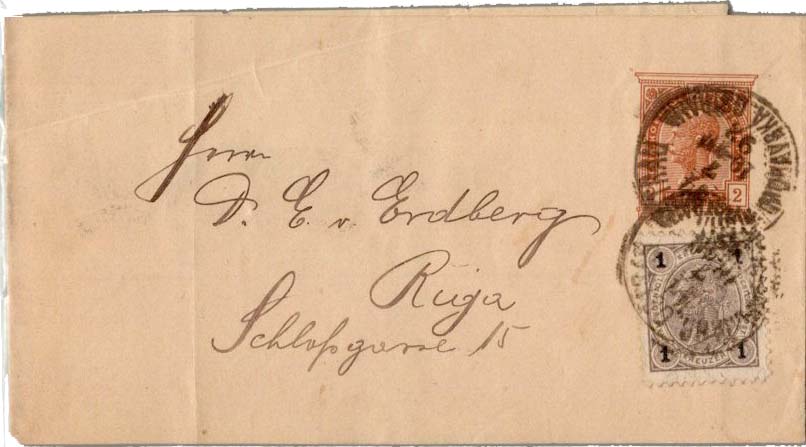 Herrn
D. E. v. Erdberg
Riga
Schloßgasse 15
2
1 1
KREUZER
1 1